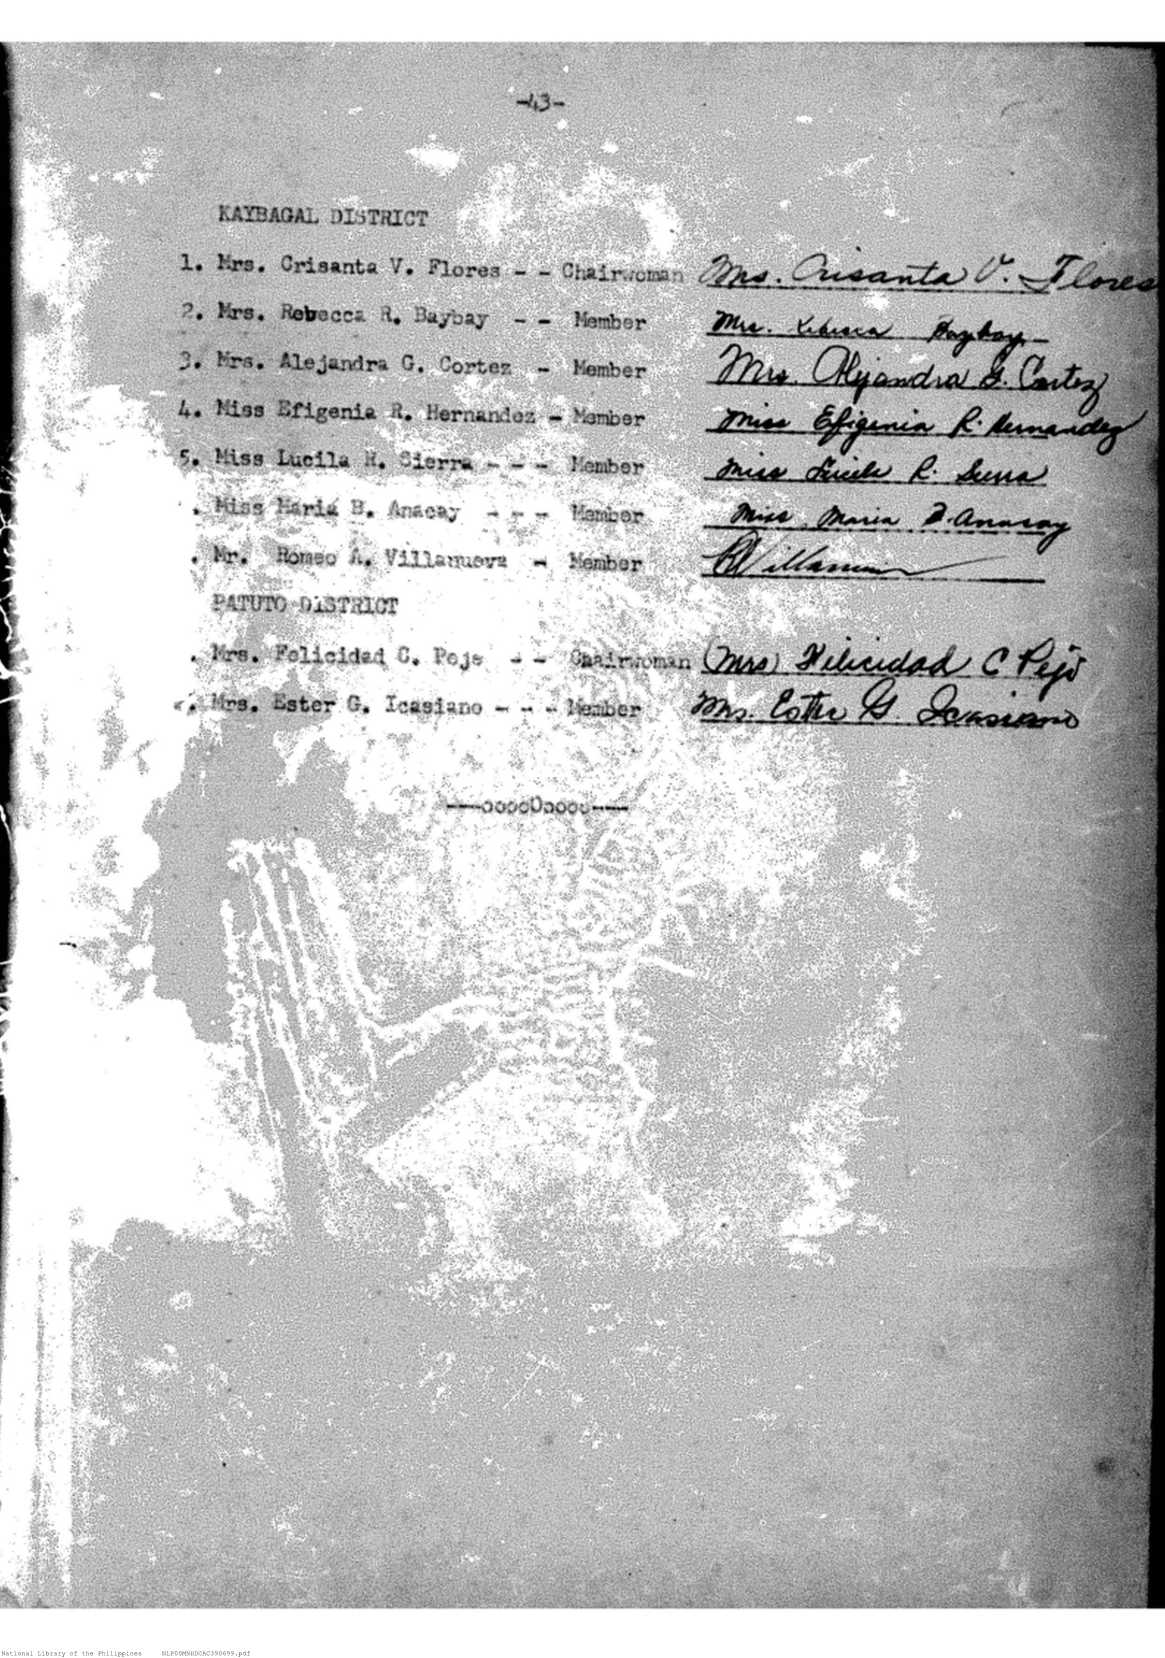 -43-
KAYBAGAL DISTRICT
1. Mrs. Crisanta V. Flores - - Chairwoman Mrs. Crisanta V. Flores
2. Mrs. Rebecca R. Baybay - - Member Mrs. Rebecca Baybay
3. Mrs. Alejandra G. Cortez - Member Mrs. Alejandra G. Cortez
4. Miss Efigenia R. Hernandez - Member Miss Efigenia R. Hernandez
5. Miss Lucila R. Sierra - - - Member Miss Lucila R. Sierra
. Miss Maria B. Anacay - - - Member Miss Maria B. Anacay
. Mr. Romeo A. Villanueva - Member RVillanueva
PATUTO DISTRICT
. Mrs. Felicidad C. Pejo - - Chairwoman (Mrs) Felicidad C Pejo
. Mrs. Ester G. Icasiano - - - Member Mrs. Ester G Icasiano
---ooooOoooo---
National Library of the Philippines